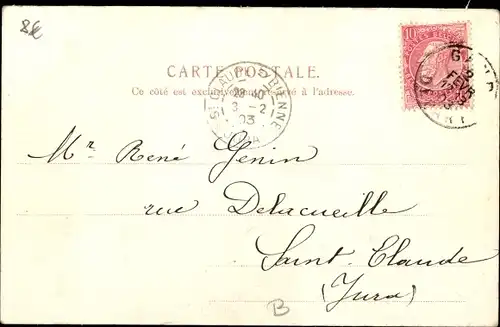 8€
10
CARTE POSTALE.
Ce côté est exclusivement réservé à l'adresse.
3-2
03
Mr René Genin
rue Delacueille
Saint-Claude
(Jura)
B